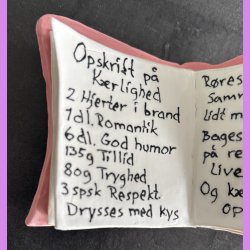 Opskrift på
Kærlighed
2 Hjerter i brand
1 dl. Romantik
6 dl. God humor
135g Tillid
80g Tryghed
3 spsk Respekt.
Drysses med kys
Røres
Samm
Lidt m
Bages
på re
Live
Og kæ
Op